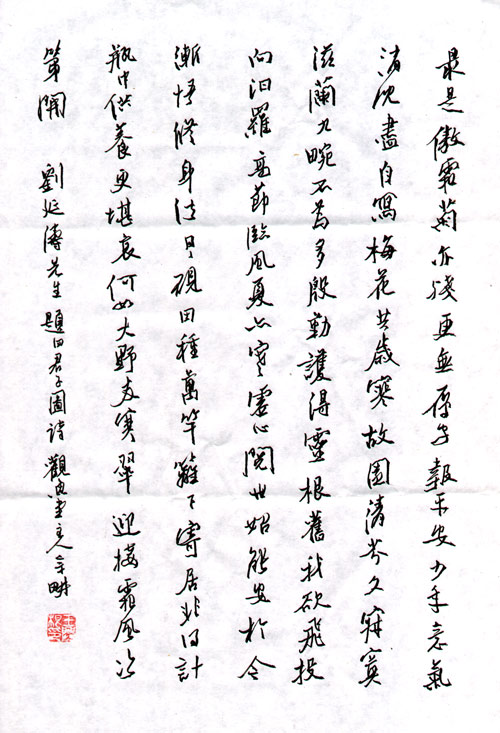 最是傲霜菊亦殘更無雁字報平安少年意氣
消沈盡自寫梅花共歲寒故園清芬久寂寞
滋蘭九畹不為多殷勤護得靈根舊我欲飛投
向汨羅高節臨風夏亦寒虛心閱世始能安於今
漸悟修身法日々硯田種萬竿籬下寄居非得計
瓶中供養更堪哀何如大野友寒翠迎接霜風次
第開 劉延濤先生題四君子圖詩 觀堂主人